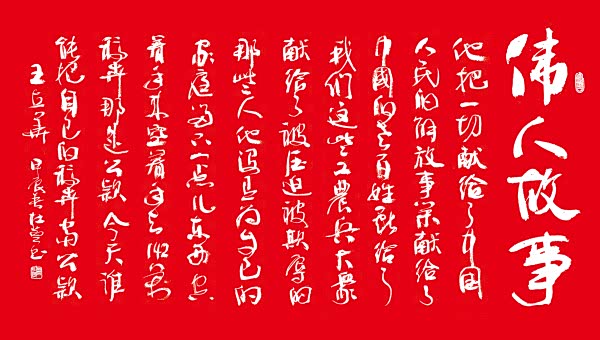 伟人故事
他把一切献给了中国
人民的解放事业献给了
中国的老百姓献给了
我们这些工农兵大众
献给了被压迫被欺辱的
那些人他没有为自己的
家庭留下一点儿东西空
着手来空着手去
稿费那是公款今天谁
能把自己的稿费当公款
王立华 甲辰春江书